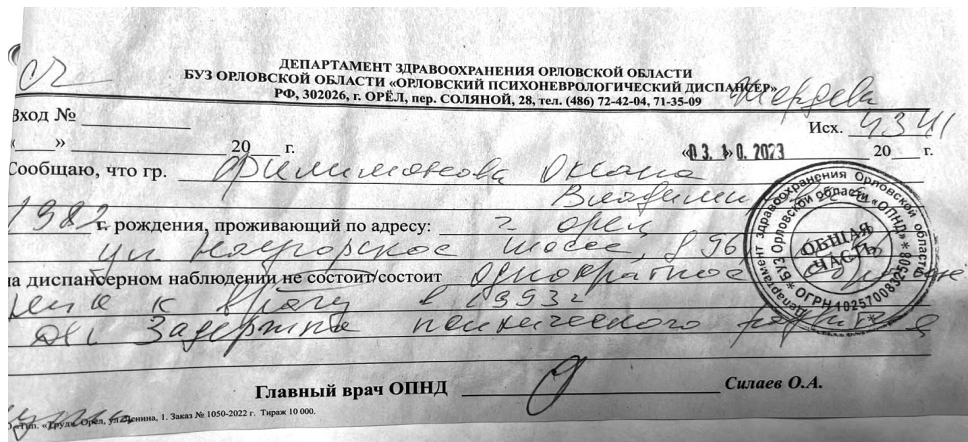 ДЕПАРТАМЕНТ ЗДРАВООХРАНЕНИЯ ОРЛОВСКОЙ ОБЛАСТИ
БУЗ ОРЛОВСКОЙ ОБЛАСТИ «ОРЛОВСКИЙ ПСИХОНЕВРОЛОГИЧЕСКИЙ ДИСПАНСЕР»
РФ, 302026, г. ОРЁЛ, пер. СОЛЯНОЙ, 28, тел. (486) 72-42-04, 71-35-09
Жердева
Вход №
Исх. 4341
« » 20 г.
«03.10.2023 20 г.
Сообщаю, что гр. Филимонова Оксана
1982 г. рождения, проживающий по адресу: г. орел
ул шоссе,
на диспансерном наблюдении не состоит/состоит однократное
к врачу в 1993г
Задержка психического развития
Департамент здравоохранения Орловской области
БУЗ Орловской области «ОПНД»
ОГРН 1025700832508
ОБЩАЯ
ЧАСТЬ
Главный врач ОПНД Силаев О.А.
Тип. «Труд». Орёл, ул. Ленина, 1. Заказ № 1050-2022 г. Тираж 10 000.